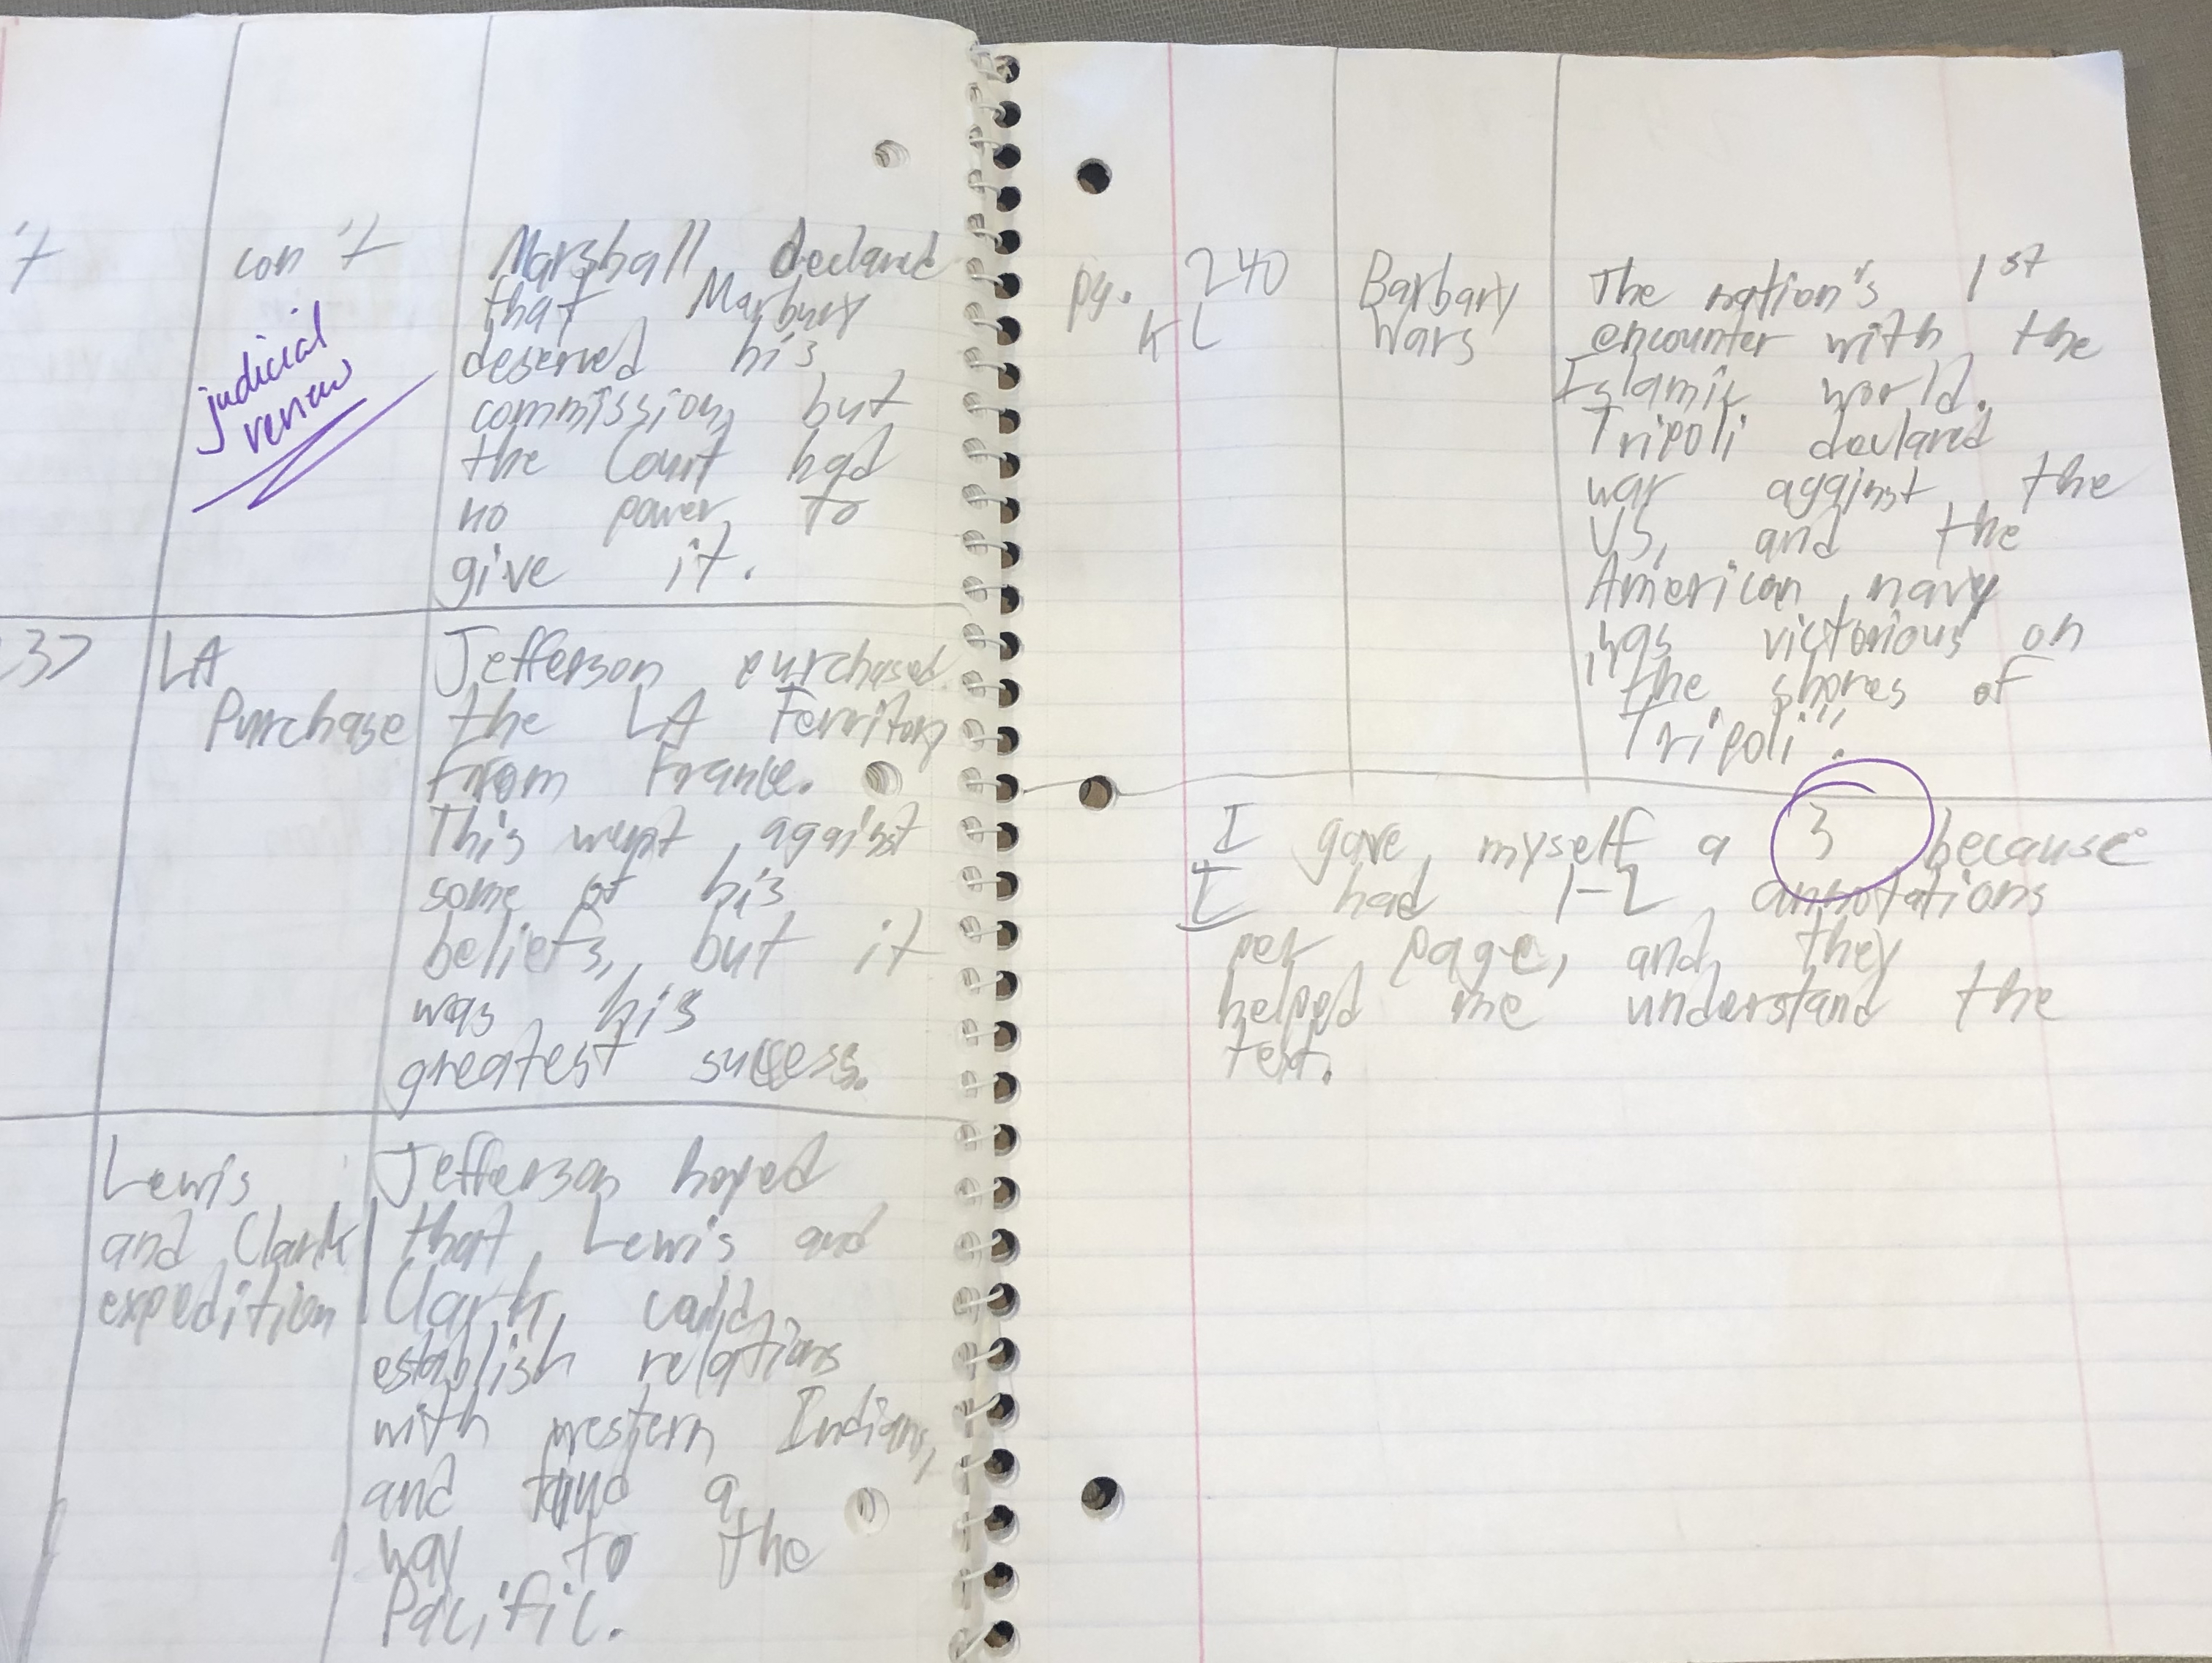 't
con't
judicial
review
Marshall declared
that Marbury
deserved his
commission, but
the Court had
no power to
give it.
37
LA
Purchase
Jefferson purchased
the LA Territory
from France.
This went against
some of his
beliefs, but it
was his
greatest success.
Lewis
and Clark
expedition
Jefferson hoped
that Lewis and
Clark could
establish relations
with western Indians,
and find a
way to the
Pacific.
pg. 240
KL
Barbary
Wars
The nation's 1st
encounter with the
Islamic world.
Tripoli declared
war against the
US, and the
American navy
was victorious on
"the shores of
Tripoli".
I gave myself a 3 because
I had 1-2 annotations
per page, and they
helped me understand the
text.